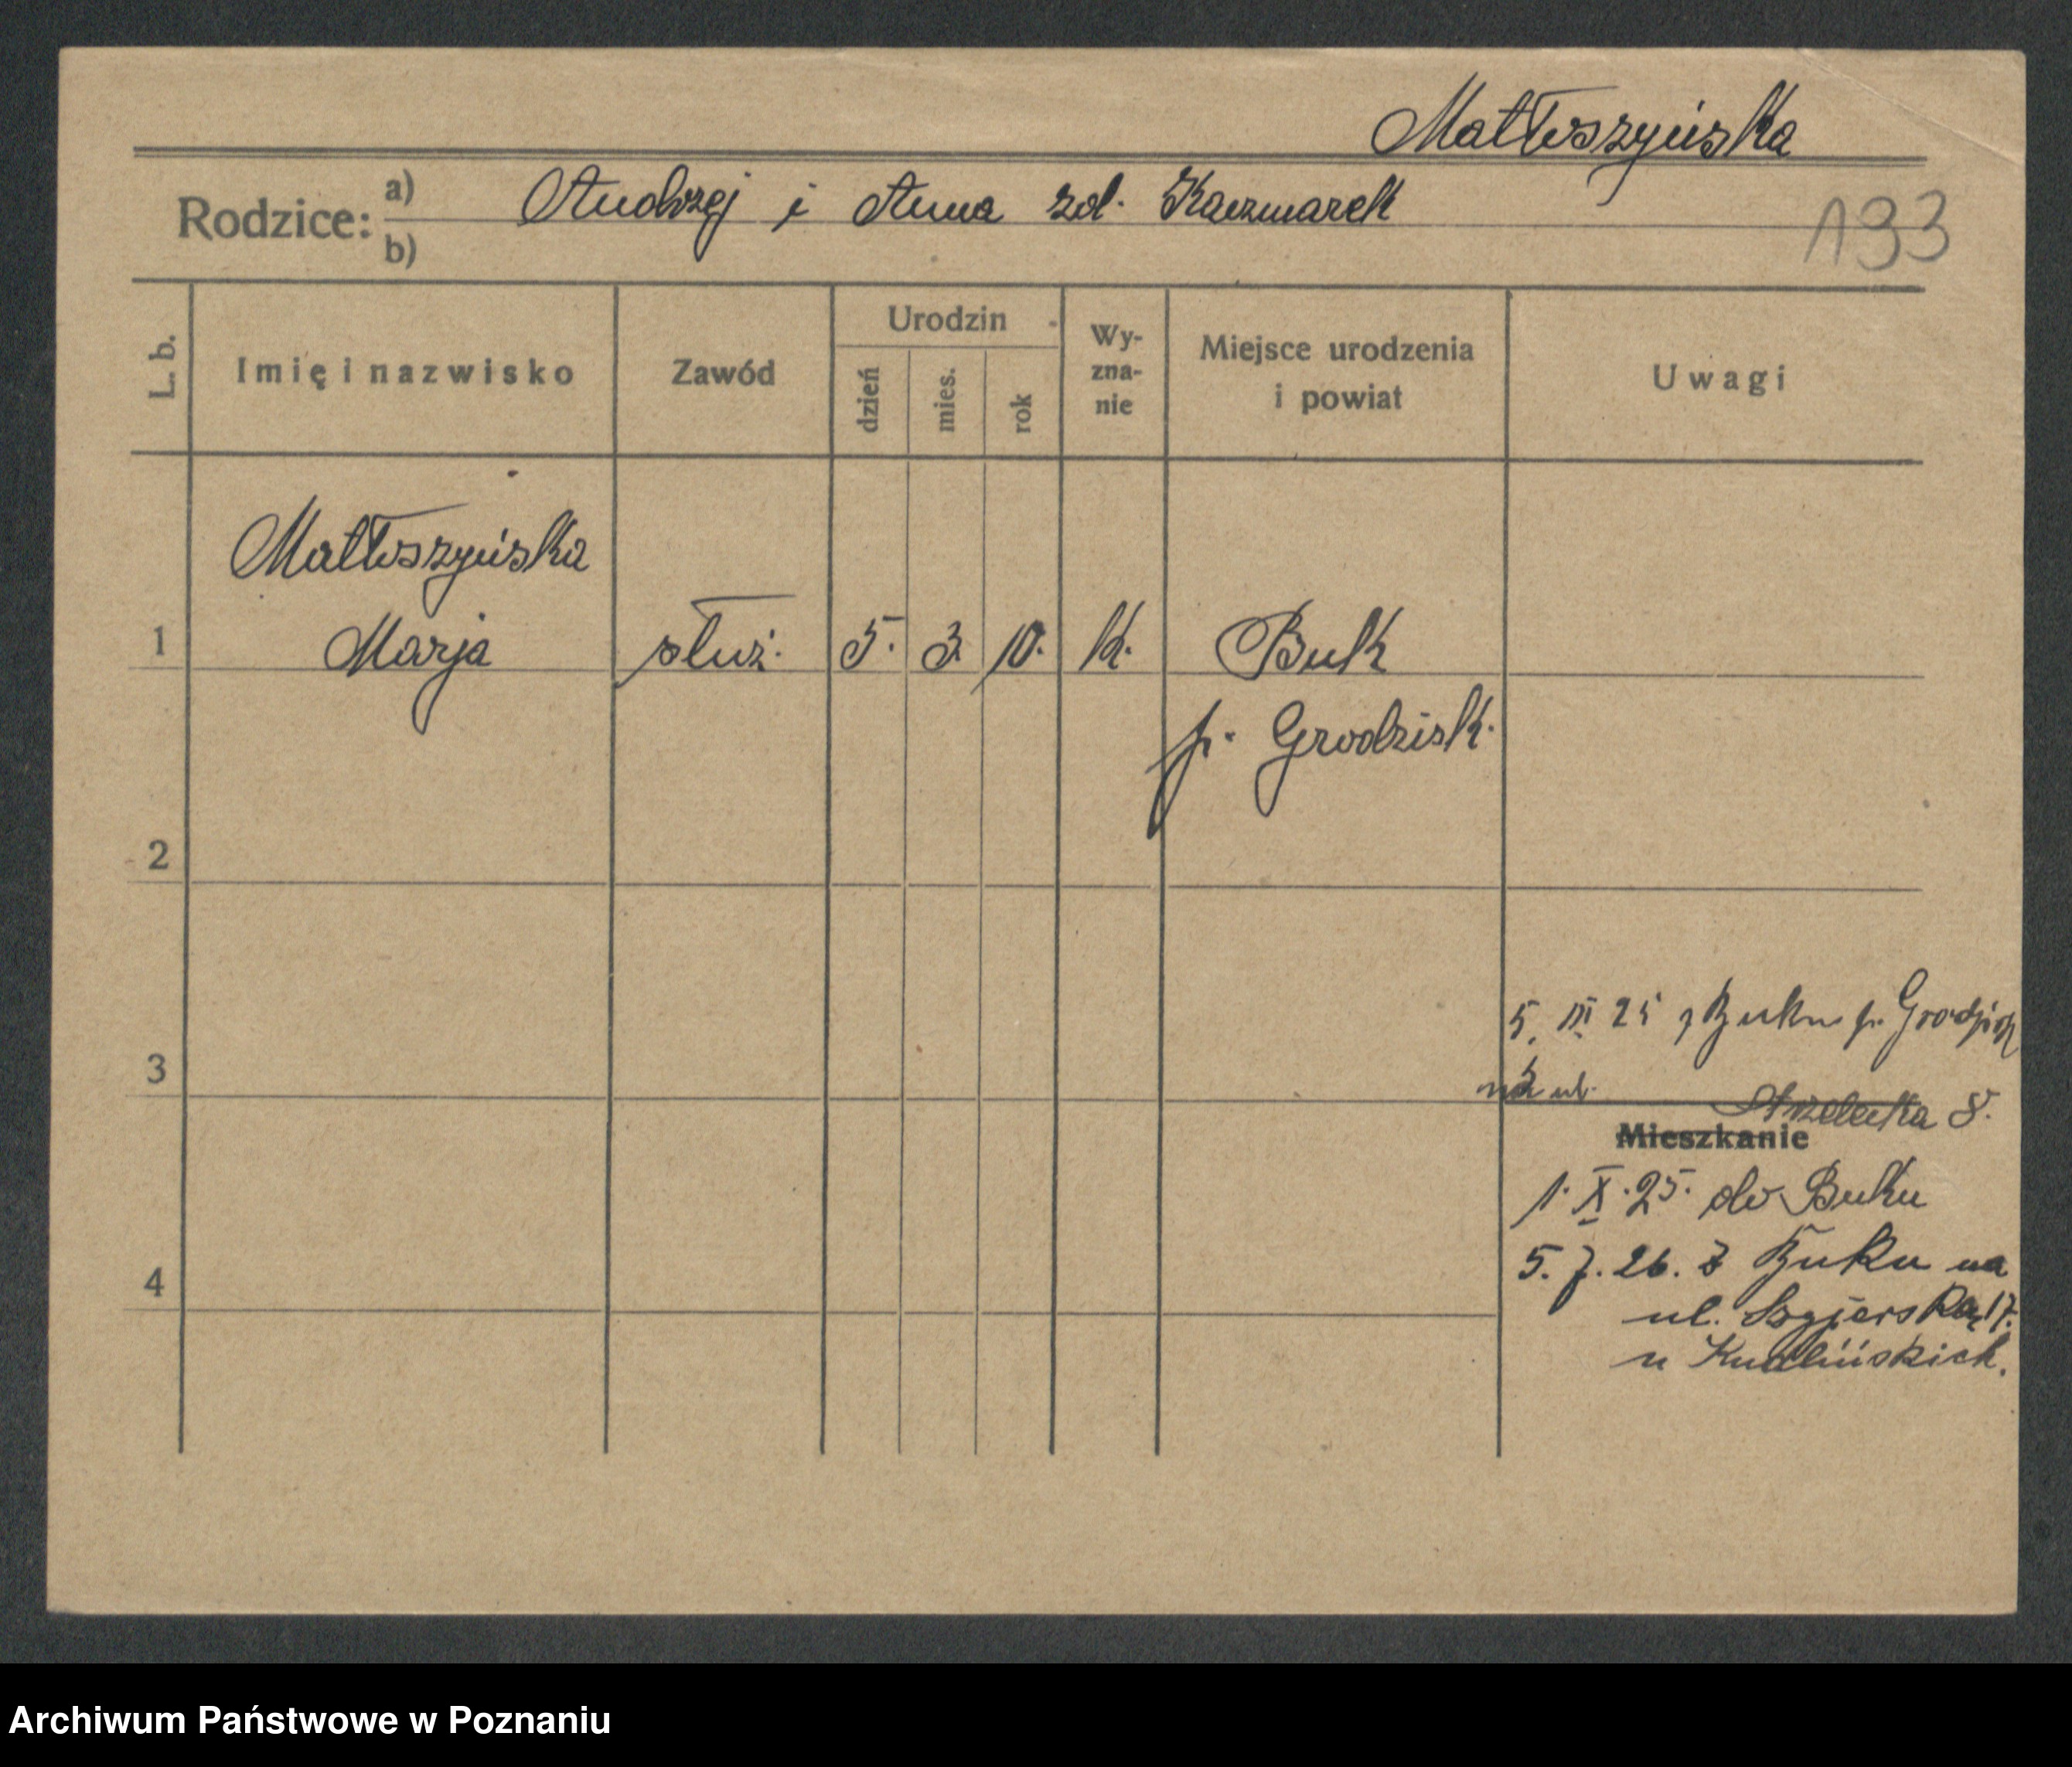 Matłoszyńska
Rodzice: a) Andrzej i Anna zd. Kaczmarek
b)
193
L. b. Imię i nazwisko Zawód Urodzin dzień mies. rok Wy-zna-nie Miejsce urodzenia i powiat Uwagi
Matłoszyńska
1 Marja służ. 5. 3. 10. k. Buk
p. Grodzisk.
2
3
5. III 25 z Buku p. Grodzisk
na ul.
Strzelecka 8.
Mieszkanie
1. X. 25. do Buku
4
5. 7. 26. z Buku na
ul. 17.
u
Archiwum Państwowe w Poznaniu